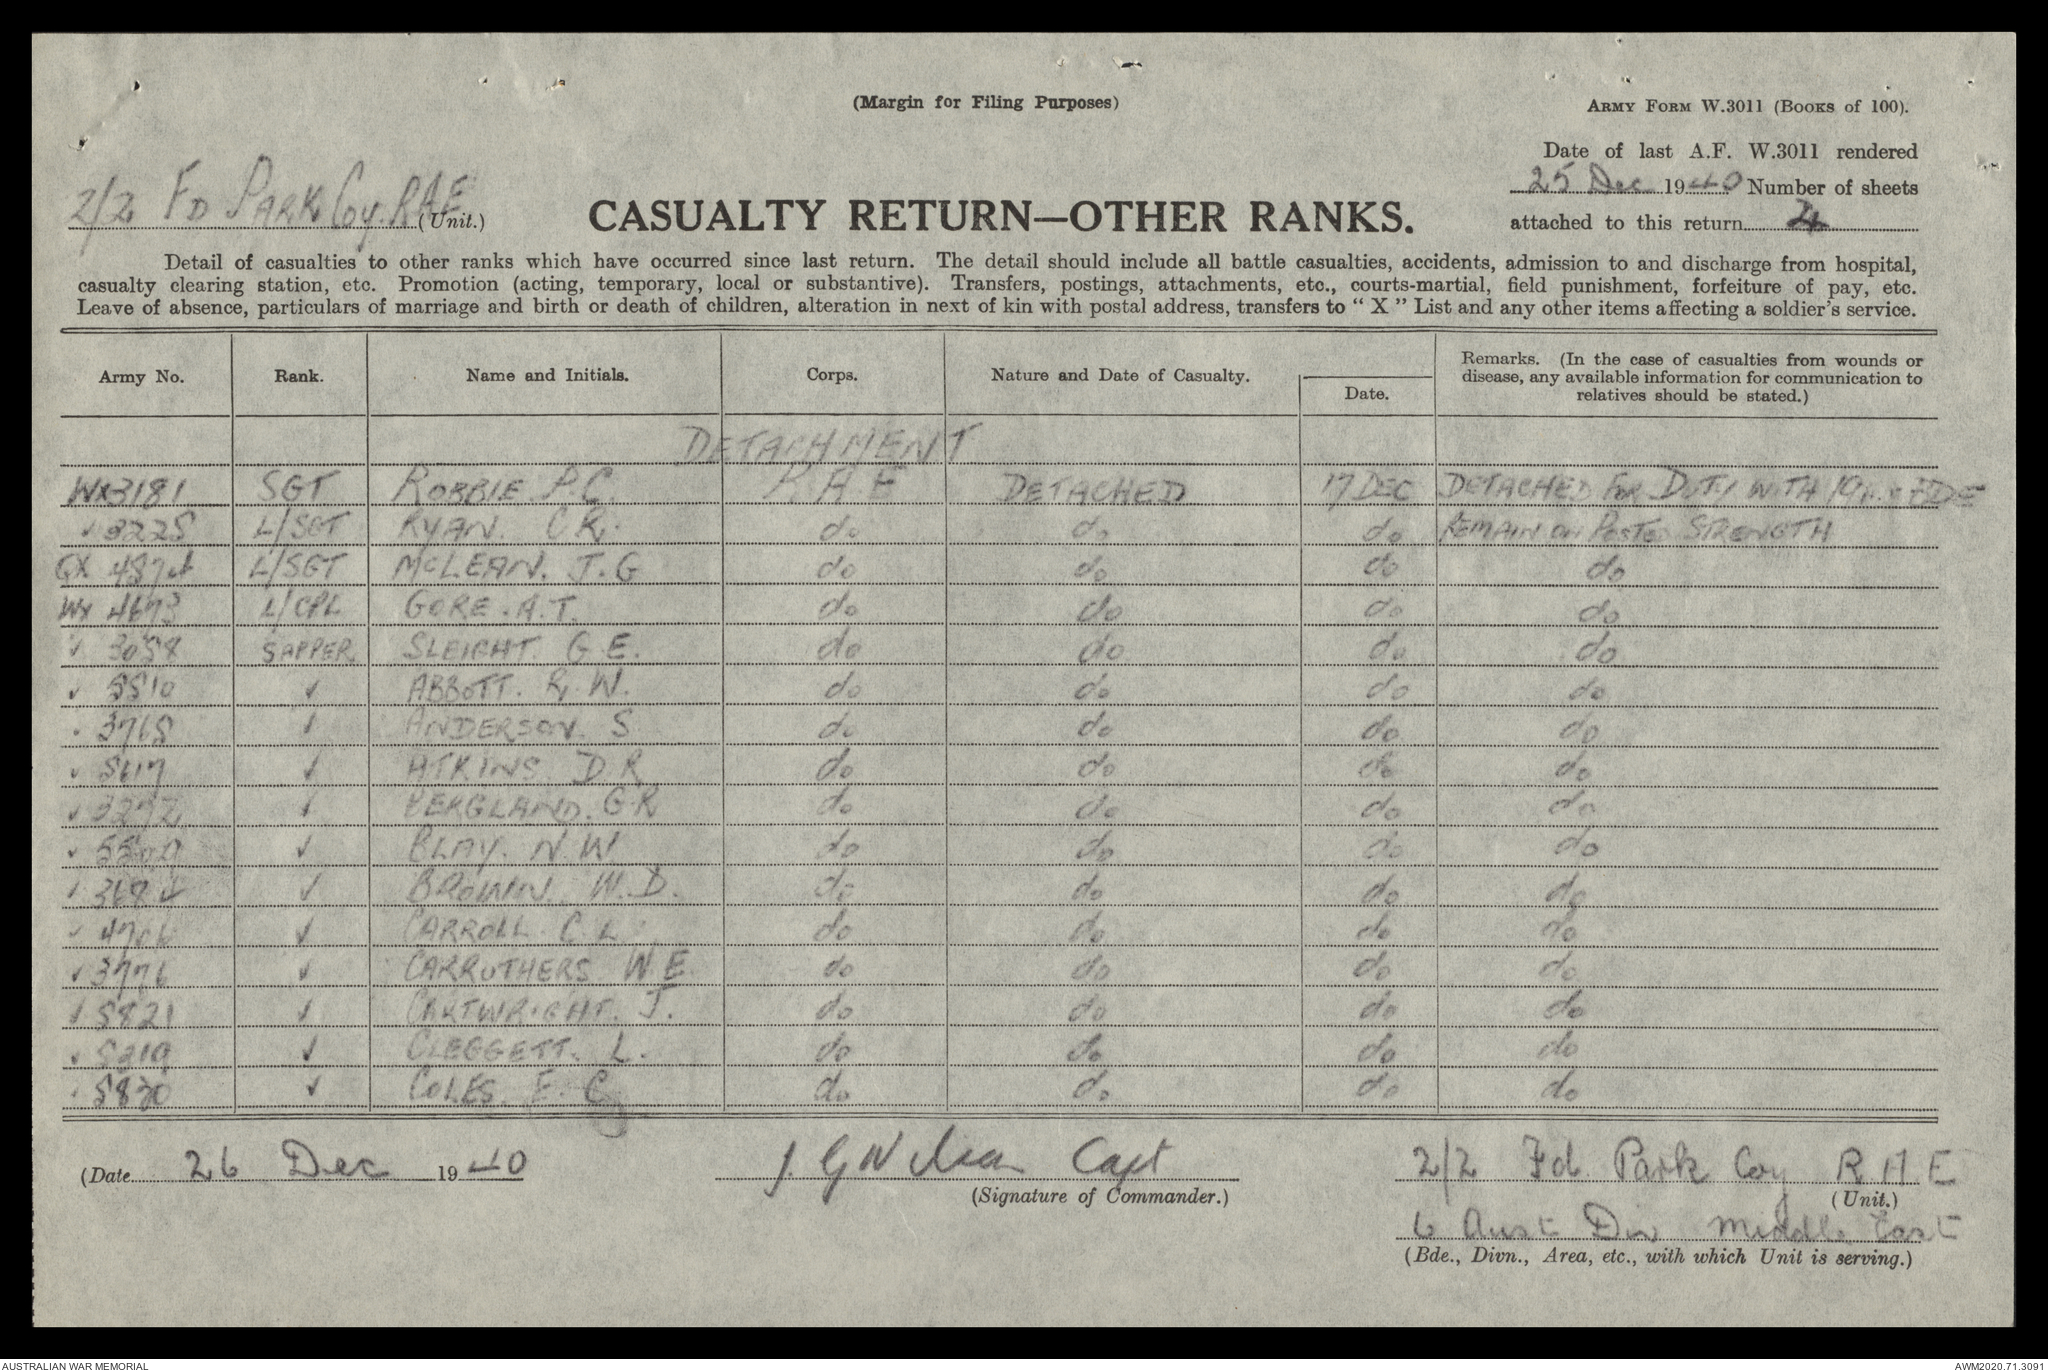 (Margin for Filing Purposes)
ARMY FORM W.3011 (BOOKS of 100).
Date of last A.F. W.3011 rendered
25 Dec 1940 Number of sheets
attached to this return 4
2/2 FD PARK Coy. RAE (Unit.)
CASUALTY RETURN—OTHER RANKS.
Detail of casualties to other ranks which have occurred since last return. The detail should include all battle casualties, accidents, admission to and discharge from hospital,
casualty clearing station, etc. Promotion (acting, temporary, local or substantive). Transfers, postings, attachments, etc., courts-martial, field punishment, forfeiture of pay, etc.
Leave of absence, particulars of marriage and birth or death of children, alteration in next of kin with postal address, transfers to "X" List and any other items affecting a soldier's service.
Army No. Rank. Name and Initials. Corps. Nature and Date of Casualty. Date. Remarks. (In the case of casualties from wounds or
disease, any available information for communication to
relatives should be stated.)
DETACHMENT
WX3181 SGT ROBBIE P.C. RAE DETACHED 17 DEC DETACHED FOR DUTY WITH BDE
✓ 3225 L/SGT RYAN. C R. do do do REMAIN ON POSTED STRENGTH
QX 4874 L/SGT McLEAN. J.G do do do do
WX 4673 L/CPL GORE. A.T. do do do do
✓ 3058 SAPPER SLEIGHT. G.E. do do do do
✓ 5510 ✓ ABBOTT. R.W. do do do do
✓ 3765 ✓ ANDERSON. S do do do do
✓ 5617 ✓ ATKINS. D R do do do do
✓ 3272 ✓ BERGLAND. G.R do do do do
✓ ✓ BLAY. N.W do do do do
✓ ✓ BROWN. W.D. do do do do
✓ 4706 ✓ CARROLL. C L. do do do do
✓ 3776 ✓ CARRUTHERS W.E do do do do
✓ 5821 ✓ CARTWRIGHT. J. do do do do
✓ 5219 ✓ CLEGGETT. L. do do do do
✓ 5820 ✓ COLES. E. C do do do do
(Date 26 Dec 1940 J. G Wilson Capt 2/2 Fd. Park Coy R A E
(Signature of Commander.) (Unit.)
6 Aust Div Middle East
(Bde., Divn., Area, etc., with which Unit is serving.)
AUSTRALIAN WAR MEMORIAL AWM2020.71.3091